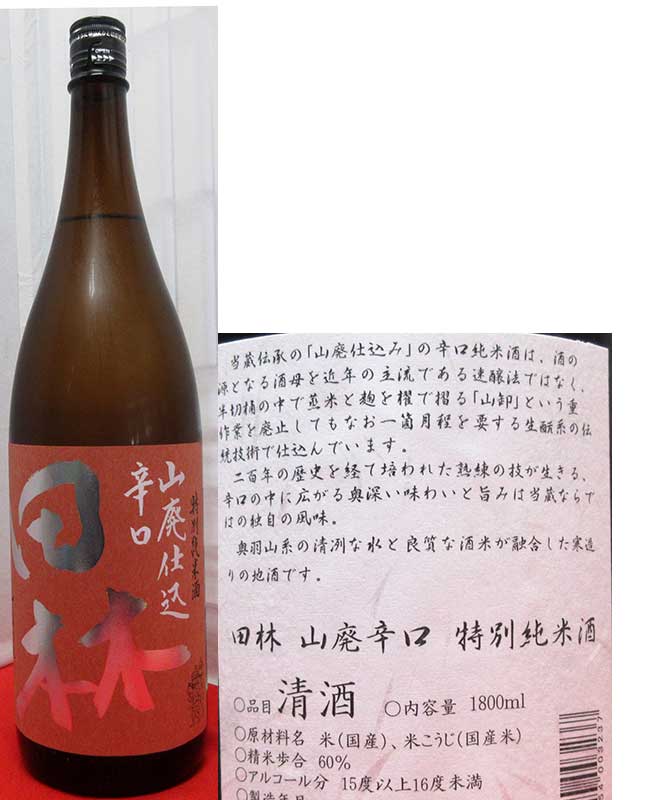 OPEN
山廃仕込
辛口
特別純米酒
田林
当蔵伝承の「山廃仕込み」の辛口純米酒は、酒の
源となる酒母を近年の主流である速醸法ではなく、
半切桶の中で蒸米と麹を櫂で摺る「山卸」という重
作業を廃止してもなお一箇月程を要する生酛系の伝
統技術で仕込んでいます。
二百年の歴史を経て培われた熟練の技が生きる、
辛口の中に広がる奥深い味わいと旨みは当蔵ならで
はの独自の風味。
奥羽山系の清冽な水と良質な酒米が融合した寒造
りの地酒です。
田林 山廃辛口 特別純米酒
○品目 清酒 ○内容量 1800ml
○原材料名 米(国産)、米こうじ(国産米)
○精米歩合 60%
○アルコール分 15度以上16度未満
○製造年月